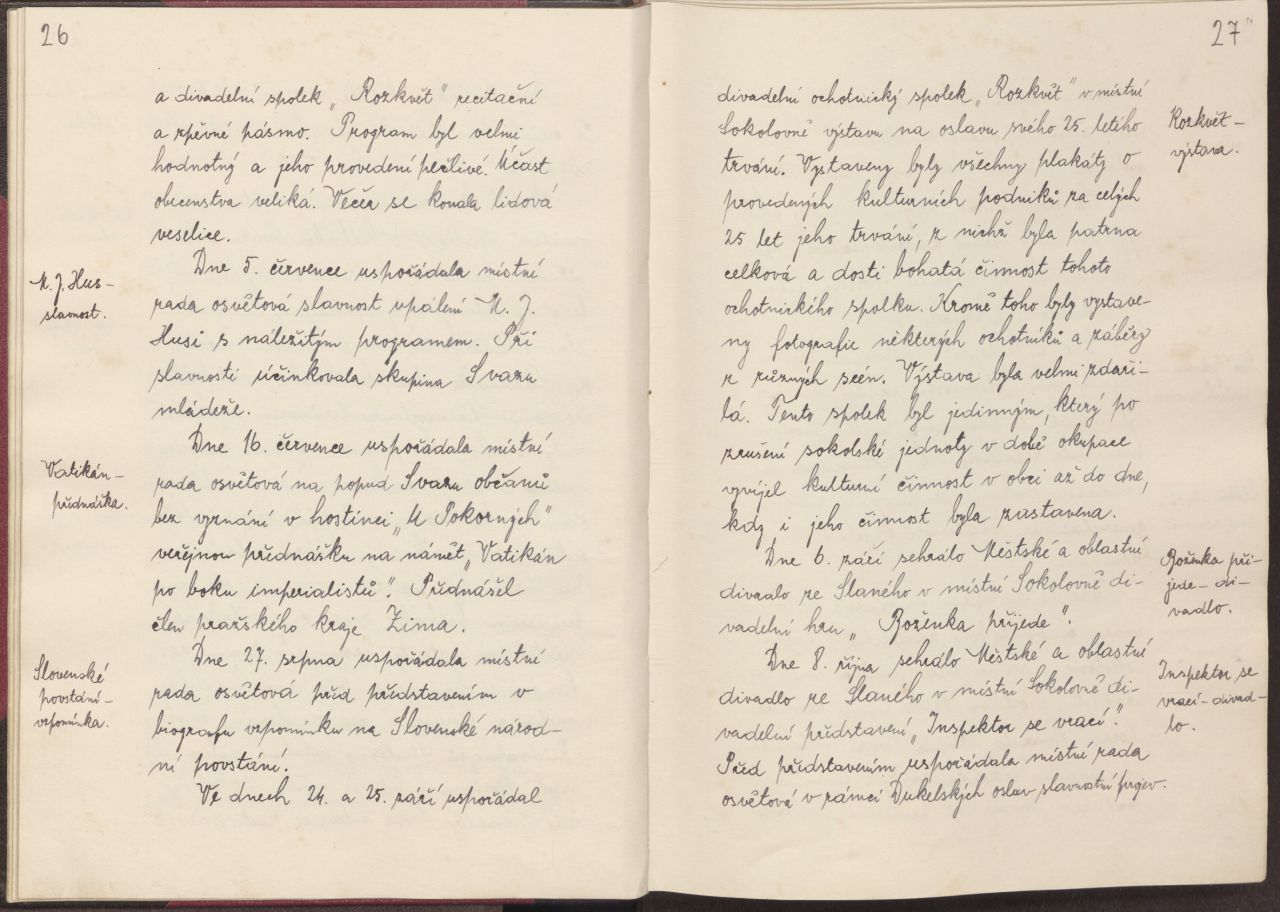 26
a divadelní spolek „Rozkvět" recitační
a zpěvné pásmo. Program byl velmi
hodnotný a jeho provedení pečlivé. Účast
obecenstva veliká. Večer se konala lidová
veselice.
M. J. Hus -
slavnost.
Dne 5. července uspořádala místní
rada osvětová slavnost upálení M. J.
Husi s náležitým programem. Při
slavnosti účinkovala skupina Svazu
mládeže.
Vatikán -
přednáška.
Dne 16. července uspořádala místní
rada osvětová na popud Svazu občanů
bez vyznání v hostinci „U Pokorných"
veřejnou přednášku na námět „Vatikán
po boku imperialistů". Přednášel
člen pražského kraje Zima.
Slovenské
povstání -
vzpomínka.
Dne 27. srpna uspořádala místní
rada osvětová před představením v
biografu vzpomínku na Slovenské národ-
ní povstání.
Ve dnech 24. a 25. září uspořádal
27
divadelní ochotnický spolek „Rozkvět" v místní
Sokolovně výstavu na oslavu svého 25. letího
trvání. Vystaveny byly všechny plakáty o
provedených kulturních podniků za celých
25 let jeho trvání, z nichž byla patrna
celková a dosti bohatá činnost tohoto
ochotnického spolku. Kromě toho byly vystave-
ny fotografie některých ochotníků a záběry
z různých scén. Výstava byla velmi zdaři-
lá. Tento spolek byl jedinným, který po
zrušení sokolské jednoty v době okupace
vyvíjel kulturní činnost v obci až do dne,
kdy i jeho činnost byla zastavena.
Rozkvět -
výstava.
Dne 6. září sehrálo Městské a oblastní
divadlo ze Slaného v místní Sokolovně di-
vadelní hru „Boženka přijede".
Boženka při-
jede - di-
vadlo.
Dne 8. října sehrálo Městské a oblastní
divadlo ze Slaného v místní Sokolovně di-
vadelní představení „Inspektor se vrací".
Před představením uspořádala místní rada
osvětová v rámci Dukelských oslav slavnostní projev.
Inspektor se
vrací - divad-
lo.